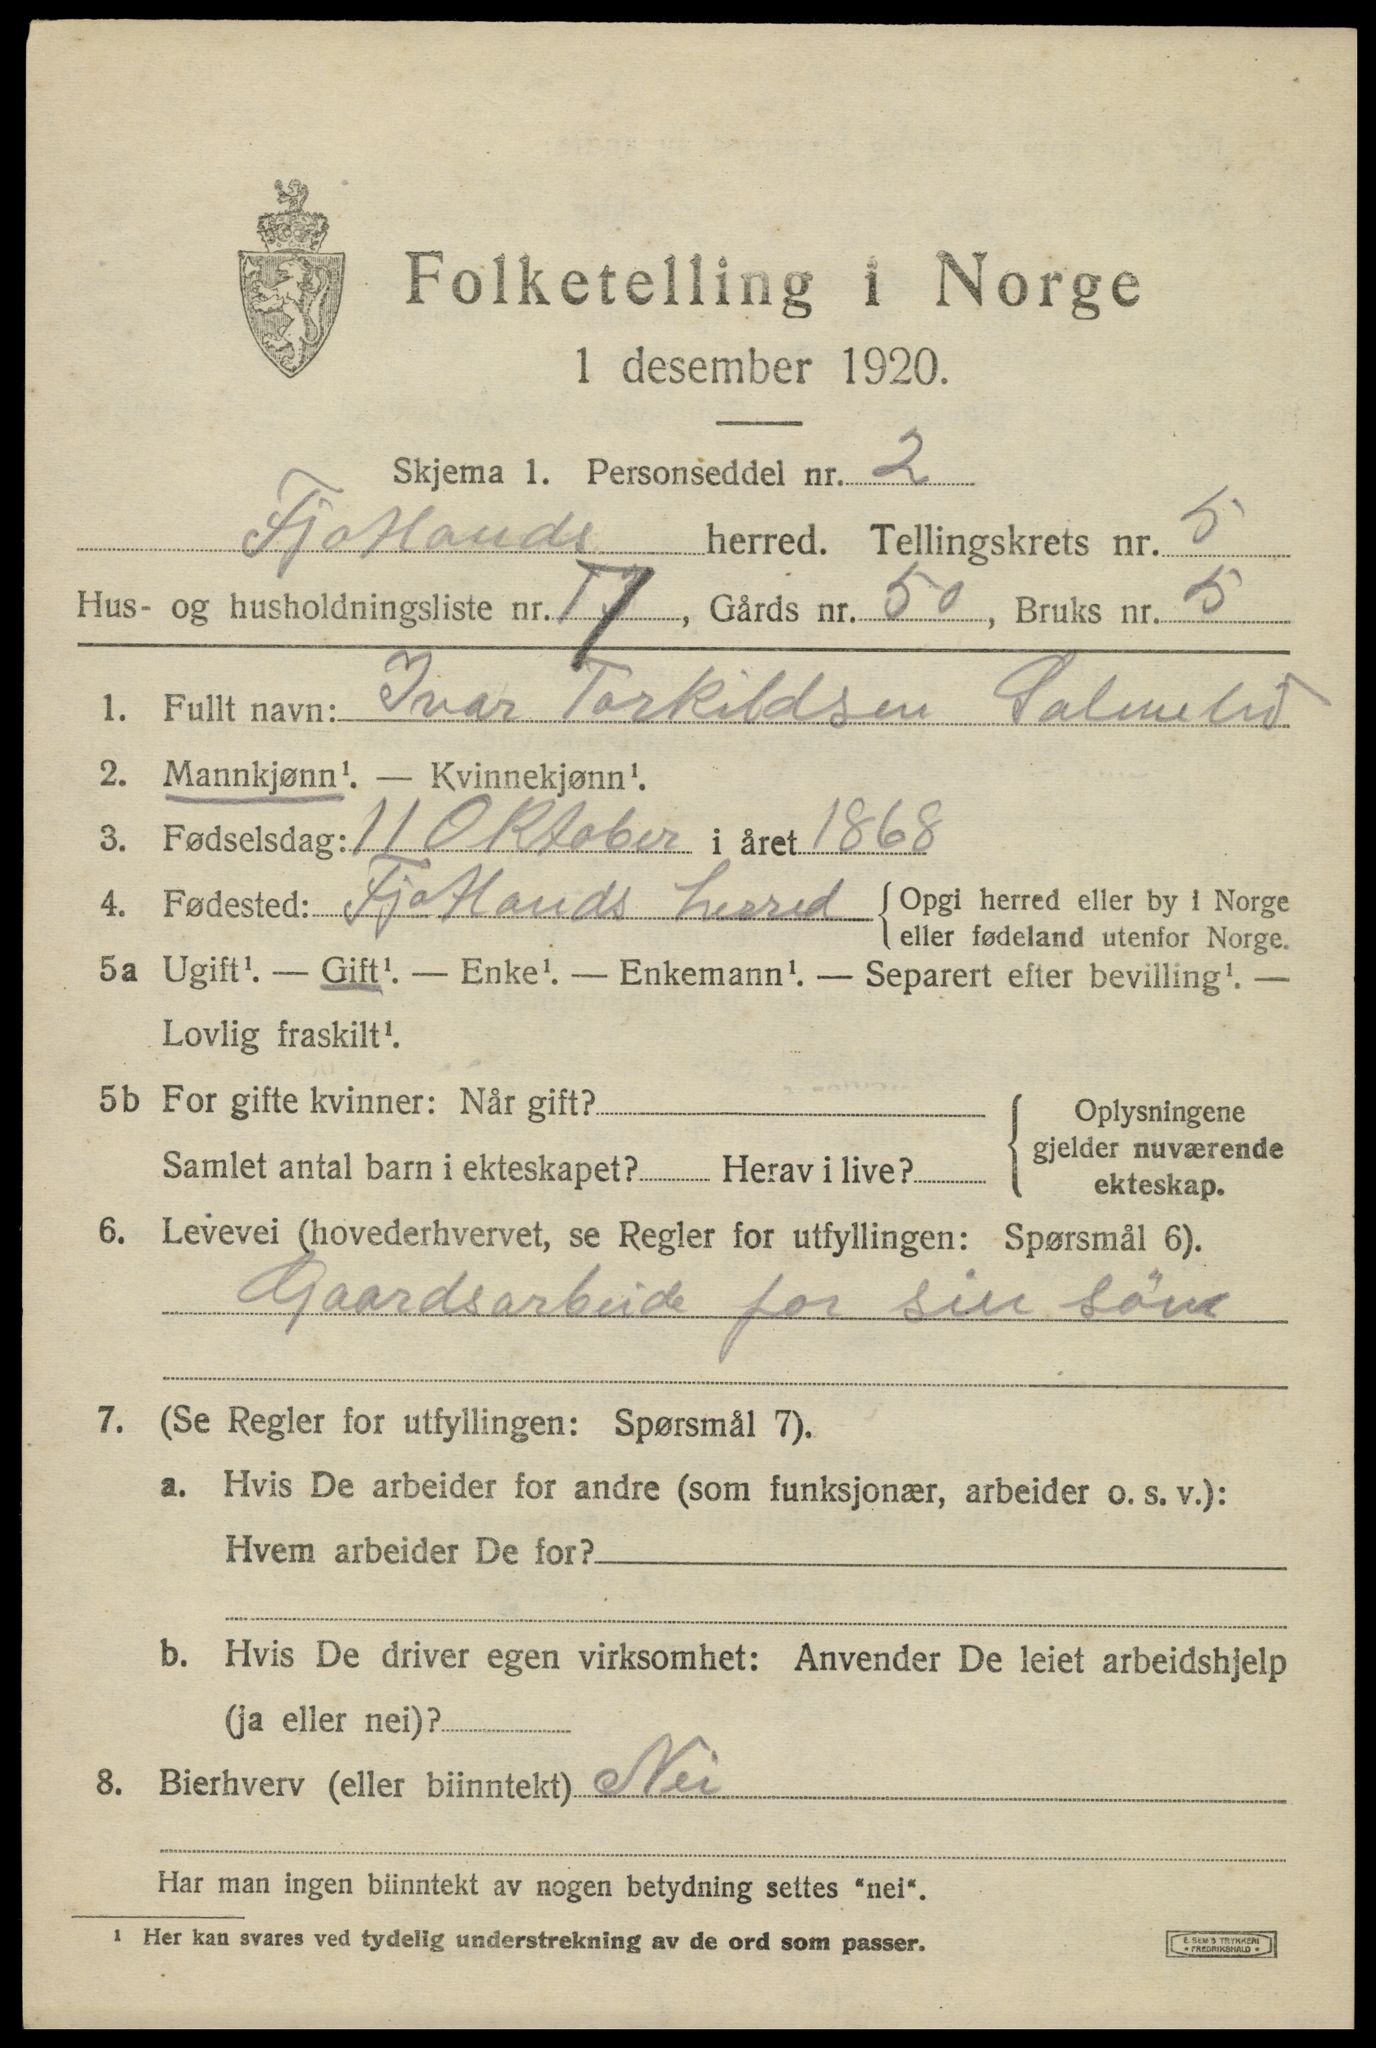 Folketelling i Norge
1 desember 1920.
Skjema 1. Personseddel nr. 2
Fjotlands herred. Tellingskrets nr. 5
Hus- og husholdningsliste nr. 7, Gårds nr. 50, Bruks nr. 5
1. Fullt navn: Ivar Torkildsen Salmelid
2. Mannkjønn¹. — Kvinnekjønn¹.
3. Fødselsdag: 11 Oktober i året 1868
4. Fødested: Fjotlands herred { Opgi herred eller by i Norge
eller fødeland utenfor Norge.
5a Ugift¹. — Gift¹. — Enke¹. — Enkemann¹. — Separert efter bevilling¹. —
Lovlig fraskilt¹.
5b For gifte kvinner: Når gift?
Samlet antal barn i ekteskapet? Herav i live?
Oplysningene
gjelder nuværende
ekteskap.
6. Levevei (hovederhvervet, se Regler for utfyllingen: Spørsmål 6).
Gaardsarbeide for sin søn
7. (Se Regler for utfyllingen: Spørsmål 7).
a. Hvis De arbeider for andre (som funksjonær, arbeider o. s. v.):
Hvem arbeider De for?
b. Hvis De driver egen virksomhet: Anvender De leiet arbeidshjelp
(ja eller nei)?
8. Bierhverv (eller biinntekt) Nei
Har man ingen biinntekt av nogen betydning settes "nei".
¹ Her kan svares ved tydelig understrekning av de ord som passer.
E. SEM'S TRYKKERI
* FREDRIKSHALD *